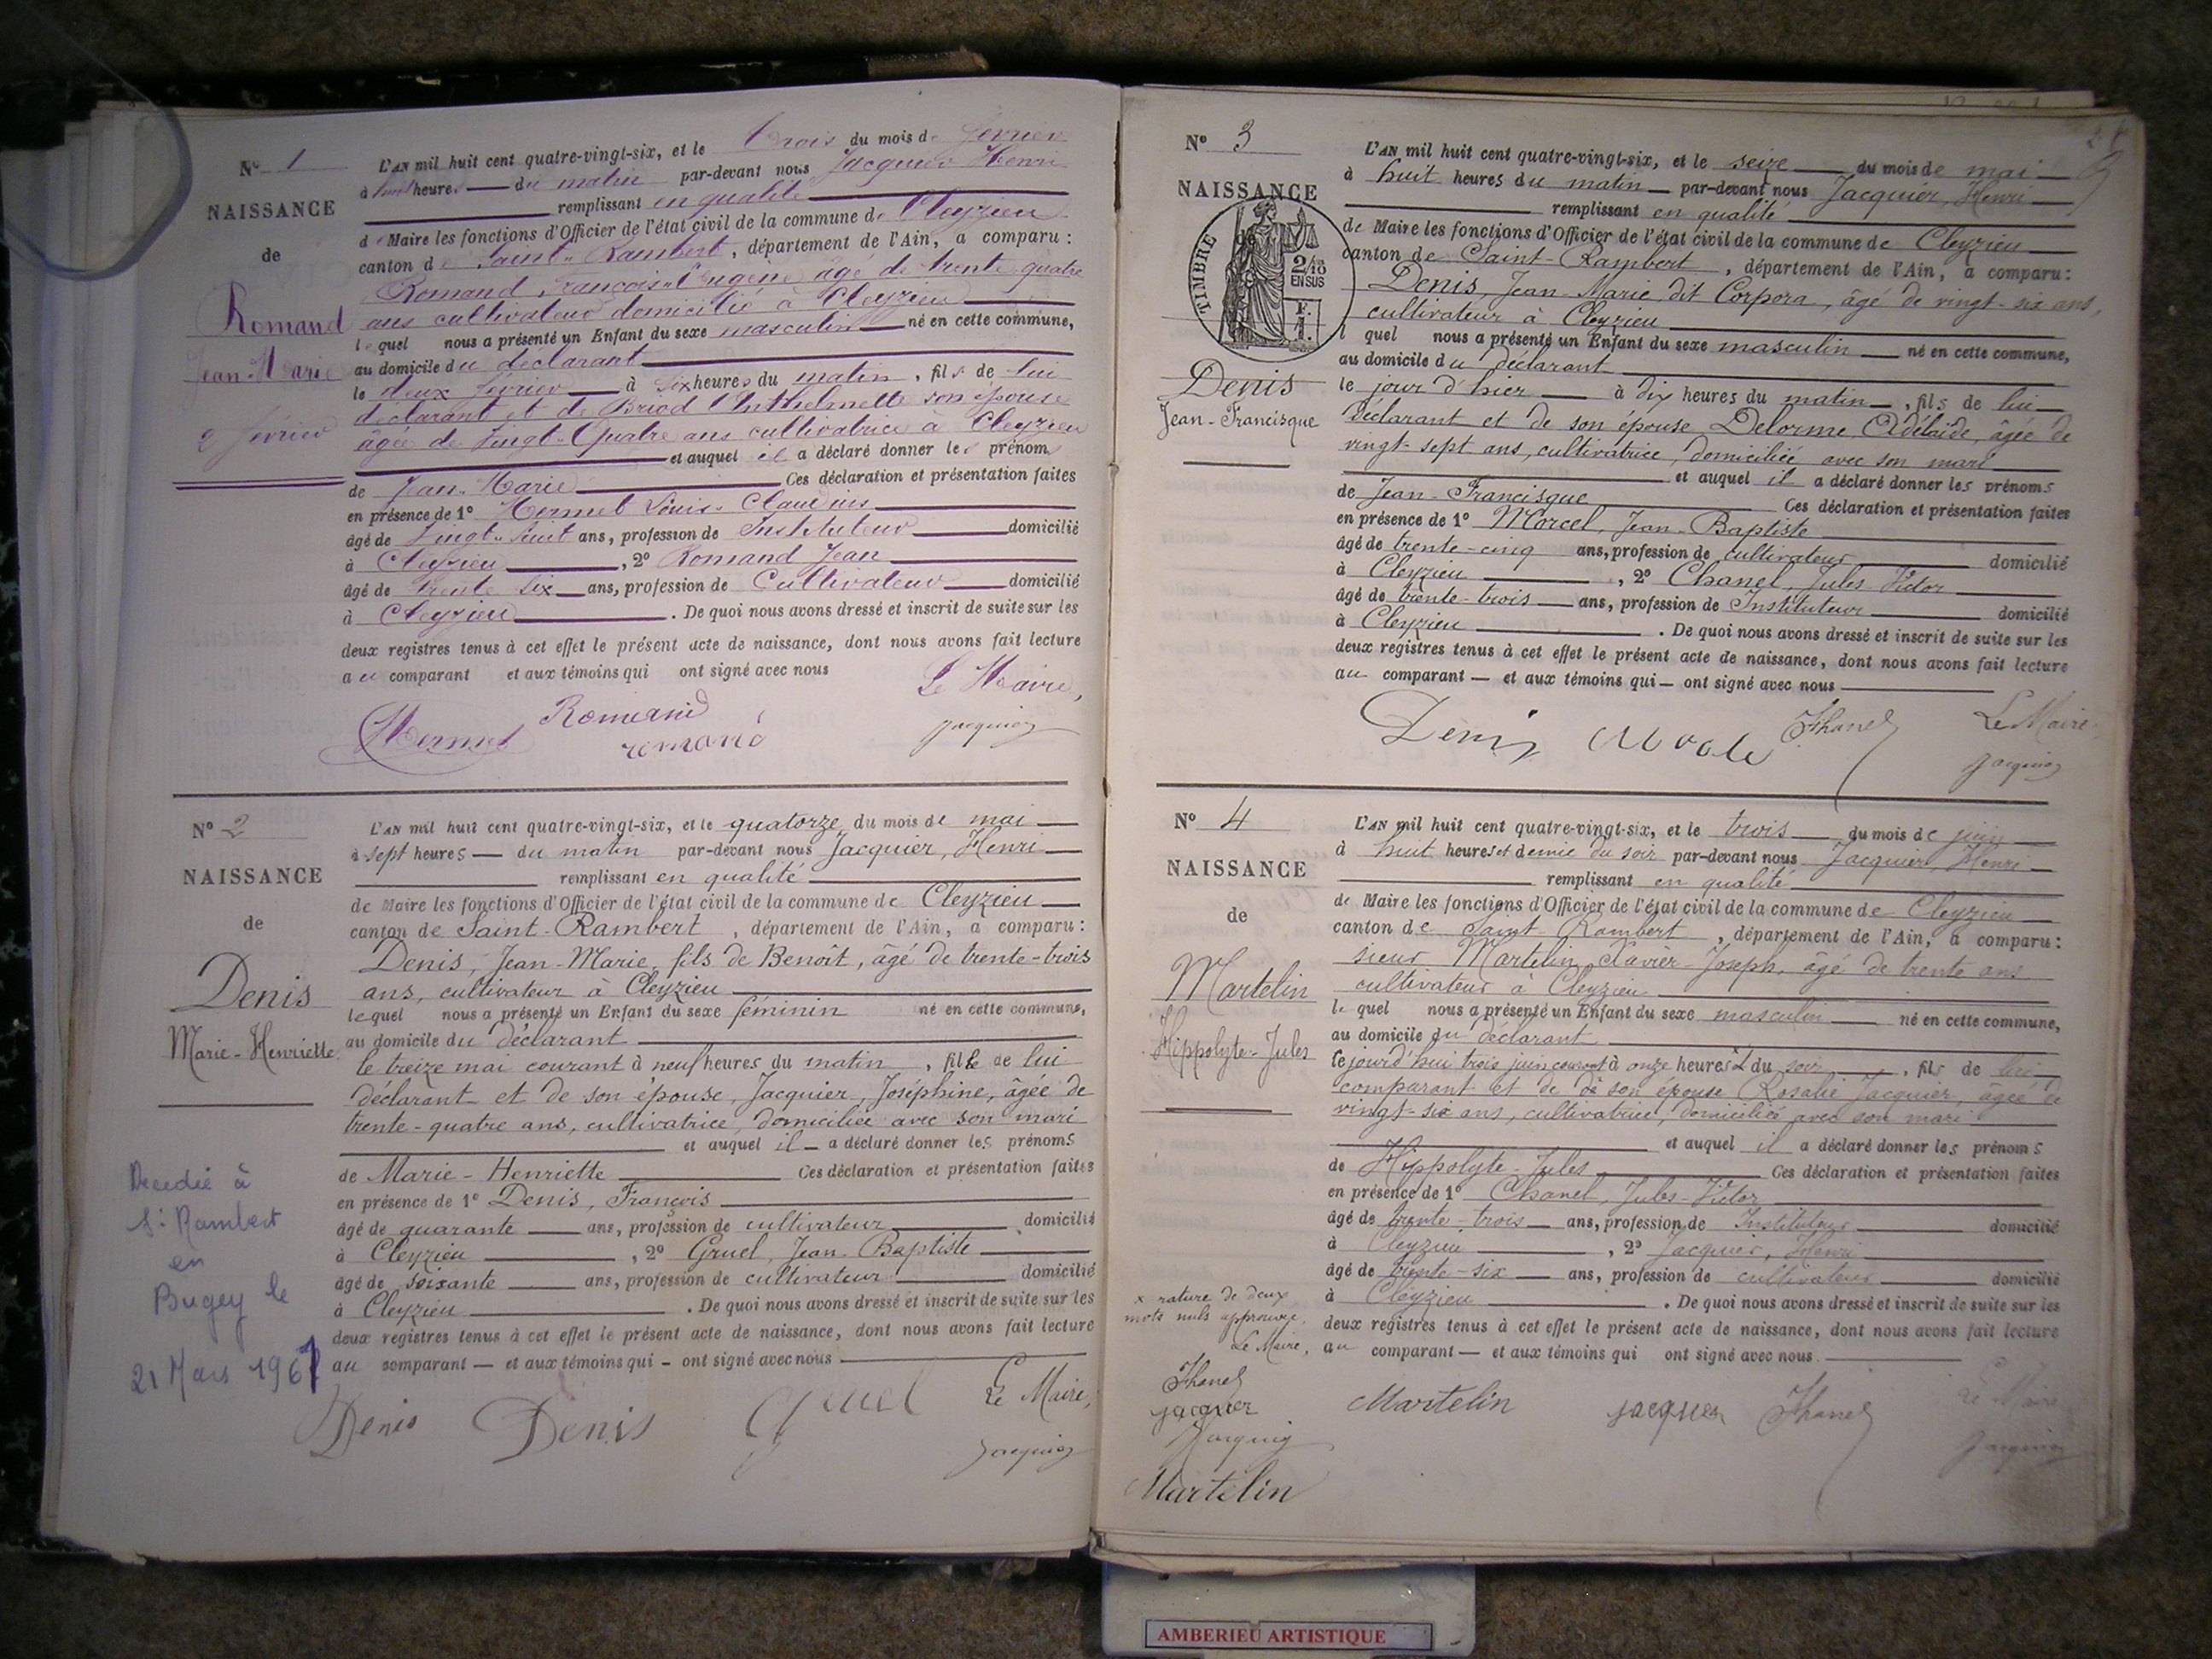 Nº 1
NAISSANCE
de
Romand
Jean-Marie
2 février
L'AN mil huit cent quatre-vingt-six, et le trois du mois de février
à huit heures du matin par-devant nous Jacquier Henri
remplissant en qualité
de Maire les fonctions d'Officier de l'état civil de la commune de Cleyzieu
canton de Saint-Rambert, département de l'Ain, a comparu :
Romand François-Eugène âgé de trente quatre
ans cultivateur domicilié à Cleyzieu
lequel nous a présenté un Enfant du sexe masculin né en cette commune,
au domicile du déclarant
le deux février à six heures du matin, fils de lui
déclarant et de Briod Anthelmette son épouse
âgée de vingt-quatre ans cultivatrice à Cleyzieu
et auquel il a déclaré donner les prénom
de Jean-Marie Ces déclaration et présentation faites
en présence de 1º Mermet Louis-Claudius
âgé de vingt-huit ans, profession de Instituteur domicilié
à Cleyzieu, 2º Romand Jean
âgé de trente six ans, profession de Cultivateur domicilié
à Cleyzieu. De quoi nous avons dressé et inscrit de suite sur les
deux registres tenus à cet effet le présent acte de naissance, dont nous avons fait lecture
au comparant et aux témoins qui ont signé avec nous
Le Maire,
Mermet Romand romand Jacquier
Nº 2
NAISSANCE
de
Denis
Marie-Henriette
Decedée à
St Rambert
en
Bugey le
21 Mars 1967
L'AN mil huit cent quatre-vingt-six, et le quatorze du mois de mai
à sept heures du matin par-devant nous Jacquier, Henri
remplissant en qualité
de Maire les fonctions d'Officier de l'état civil de la commune de Cleyzieu
canton de Saint-Rambert, département de l'Ain, a comparu :
Denis, Jean-Marie, fils de Benoît, âgé de trente-trois
ans, cultivateur à Cleyzieu
lequel nous a présenté un Enfant du sexe féminin né en cette commune,
au domicile du déclarant
le treize mai courant à neuf heures du matin, fille de lui
déclarant et de son épouse, Jacquier, Joséphine, âgée de
trente-quatre ans, cultivatrice, domiciliée avec son mari
et auquel il a déclaré donner les prénoms
de Marie-Henriette Ces déclaration et présentation faites
en présence de 1º Denis, François
âgé de quarante ans, profession de cultivateur domicilié
à Cleyzieu, 2º Gruel, Jean-Baptiste
âgé de soixante ans, profession de cultivateur domicilié
à Cleyzieu. De quoi nous avons dressé et inscrit de suite sur les
deux registres tenus à cet effet le présent acte de naissance, dont nous avons fait lecture
au comparant — et aux témoins qui — ont signé avec nous
Denis Denis Gruel Le Maire,
Jacquier
Nº 3
NAISSANCE
de
TIMBRE
2/10
EN SUS
F.
1.
Denis
Jean-Francisque
L'AN mil huit cent quatre-vingt-six, et le seize du mois de mai
à huit heures du matin par-devant nous Jacquier, Henri
remplissant en qualité
de Maire les fonctions d'Officier de l'état civil de la commune de Cleyzieu
canton de Saint-Rambert, département de l'Ain, a comparu :
Denis, Jean-Marie, dit Corpora, âgé de vingt-six ans,
cultivateur à Cleyzieu
l quel nous a présenté un Enfant du sexe masculin né en cette commune,
au domicile du déclarant
le jour d'hier à dix heures du matin, fils de lui
déclarant et de son épouse Delorme Adélaïde, âgée de
vingt-sept ans, cultivatrice, domiciliée avec son mari
et auquel il a déclaré donner les prénoms
de Jean-Francisque Ces déclaration et présentation faites
en présence de 1º Morcel, Jean-Baptiste
âgé de trente-cinq ans, profession de cultivateur domicilié
à Cleyzieu, 2º Chanel, Jules-Victor
âgé de trente-trois ans, profession de Instituteur domicilié
à Cleyzieu. De quoi nous avons dressé et inscrit de suite sur les
deux registres tenus à cet effet le présent acte de naissance, dont nous avons fait lecture
au comparant — et aux témoins qui — ont signé avec nous
Denis JChanel Le Maire,
Jacquier
Nº 4
NAISSANCE
de
Martelin
Hippolyte-Jules
L'AN mil huit cent quatre-vingt-six, et le trois du mois de juin
à huit heures et demie du soir par-devant nous Jacquier, Henri
remplissant en qualité
de Maire les fonctions d'Officier de l'état civil de la commune de Cleyzieu
canton de Saint-Rambert, département de l'Ain, a comparu :
sieur Martelin Xavier-Joseph, âgé de trente ans
cultivateur à Cleyzieu
lequel nous a présenté un Enfant du sexe masculin né en cette commune,
au domicile du déclarant
le jourd'hui trois juin courant à onze heures du soir, fils de lui
comparant et de de son épouse Rosalie Jacquier, âgée de
vingt-six ans, cultivatrice, domiciliée avec son mari
et auquel il a déclaré donner les prénoms
de Hippolyte-Jules Ces déclaration et présentation faites
en présence de 1º Chanel, Jules-Victor
âgé de trente-trois ans, profession de Instituteur domicilié
à Cleyzieu, 2º Jacquier, Henri
âgé de trente-six ans, profession de cultivateur domicilié
à Cleyzieu. De quoi nous avons dressé et inscrit de suite sur les
deux registres tenus à cet effet le présent acte de naissance, dont nous avons fait lecture
au comparant — et aux témoins qui ont signé avec nous
x rature de deux
mots nuls approuvée.
Le Maire,
JChanel
jacquier
Jacquier
Martelin
Martelin jacquier JChanel Le Maire
Jacquier
AMBERIEU ARTISTIQUE